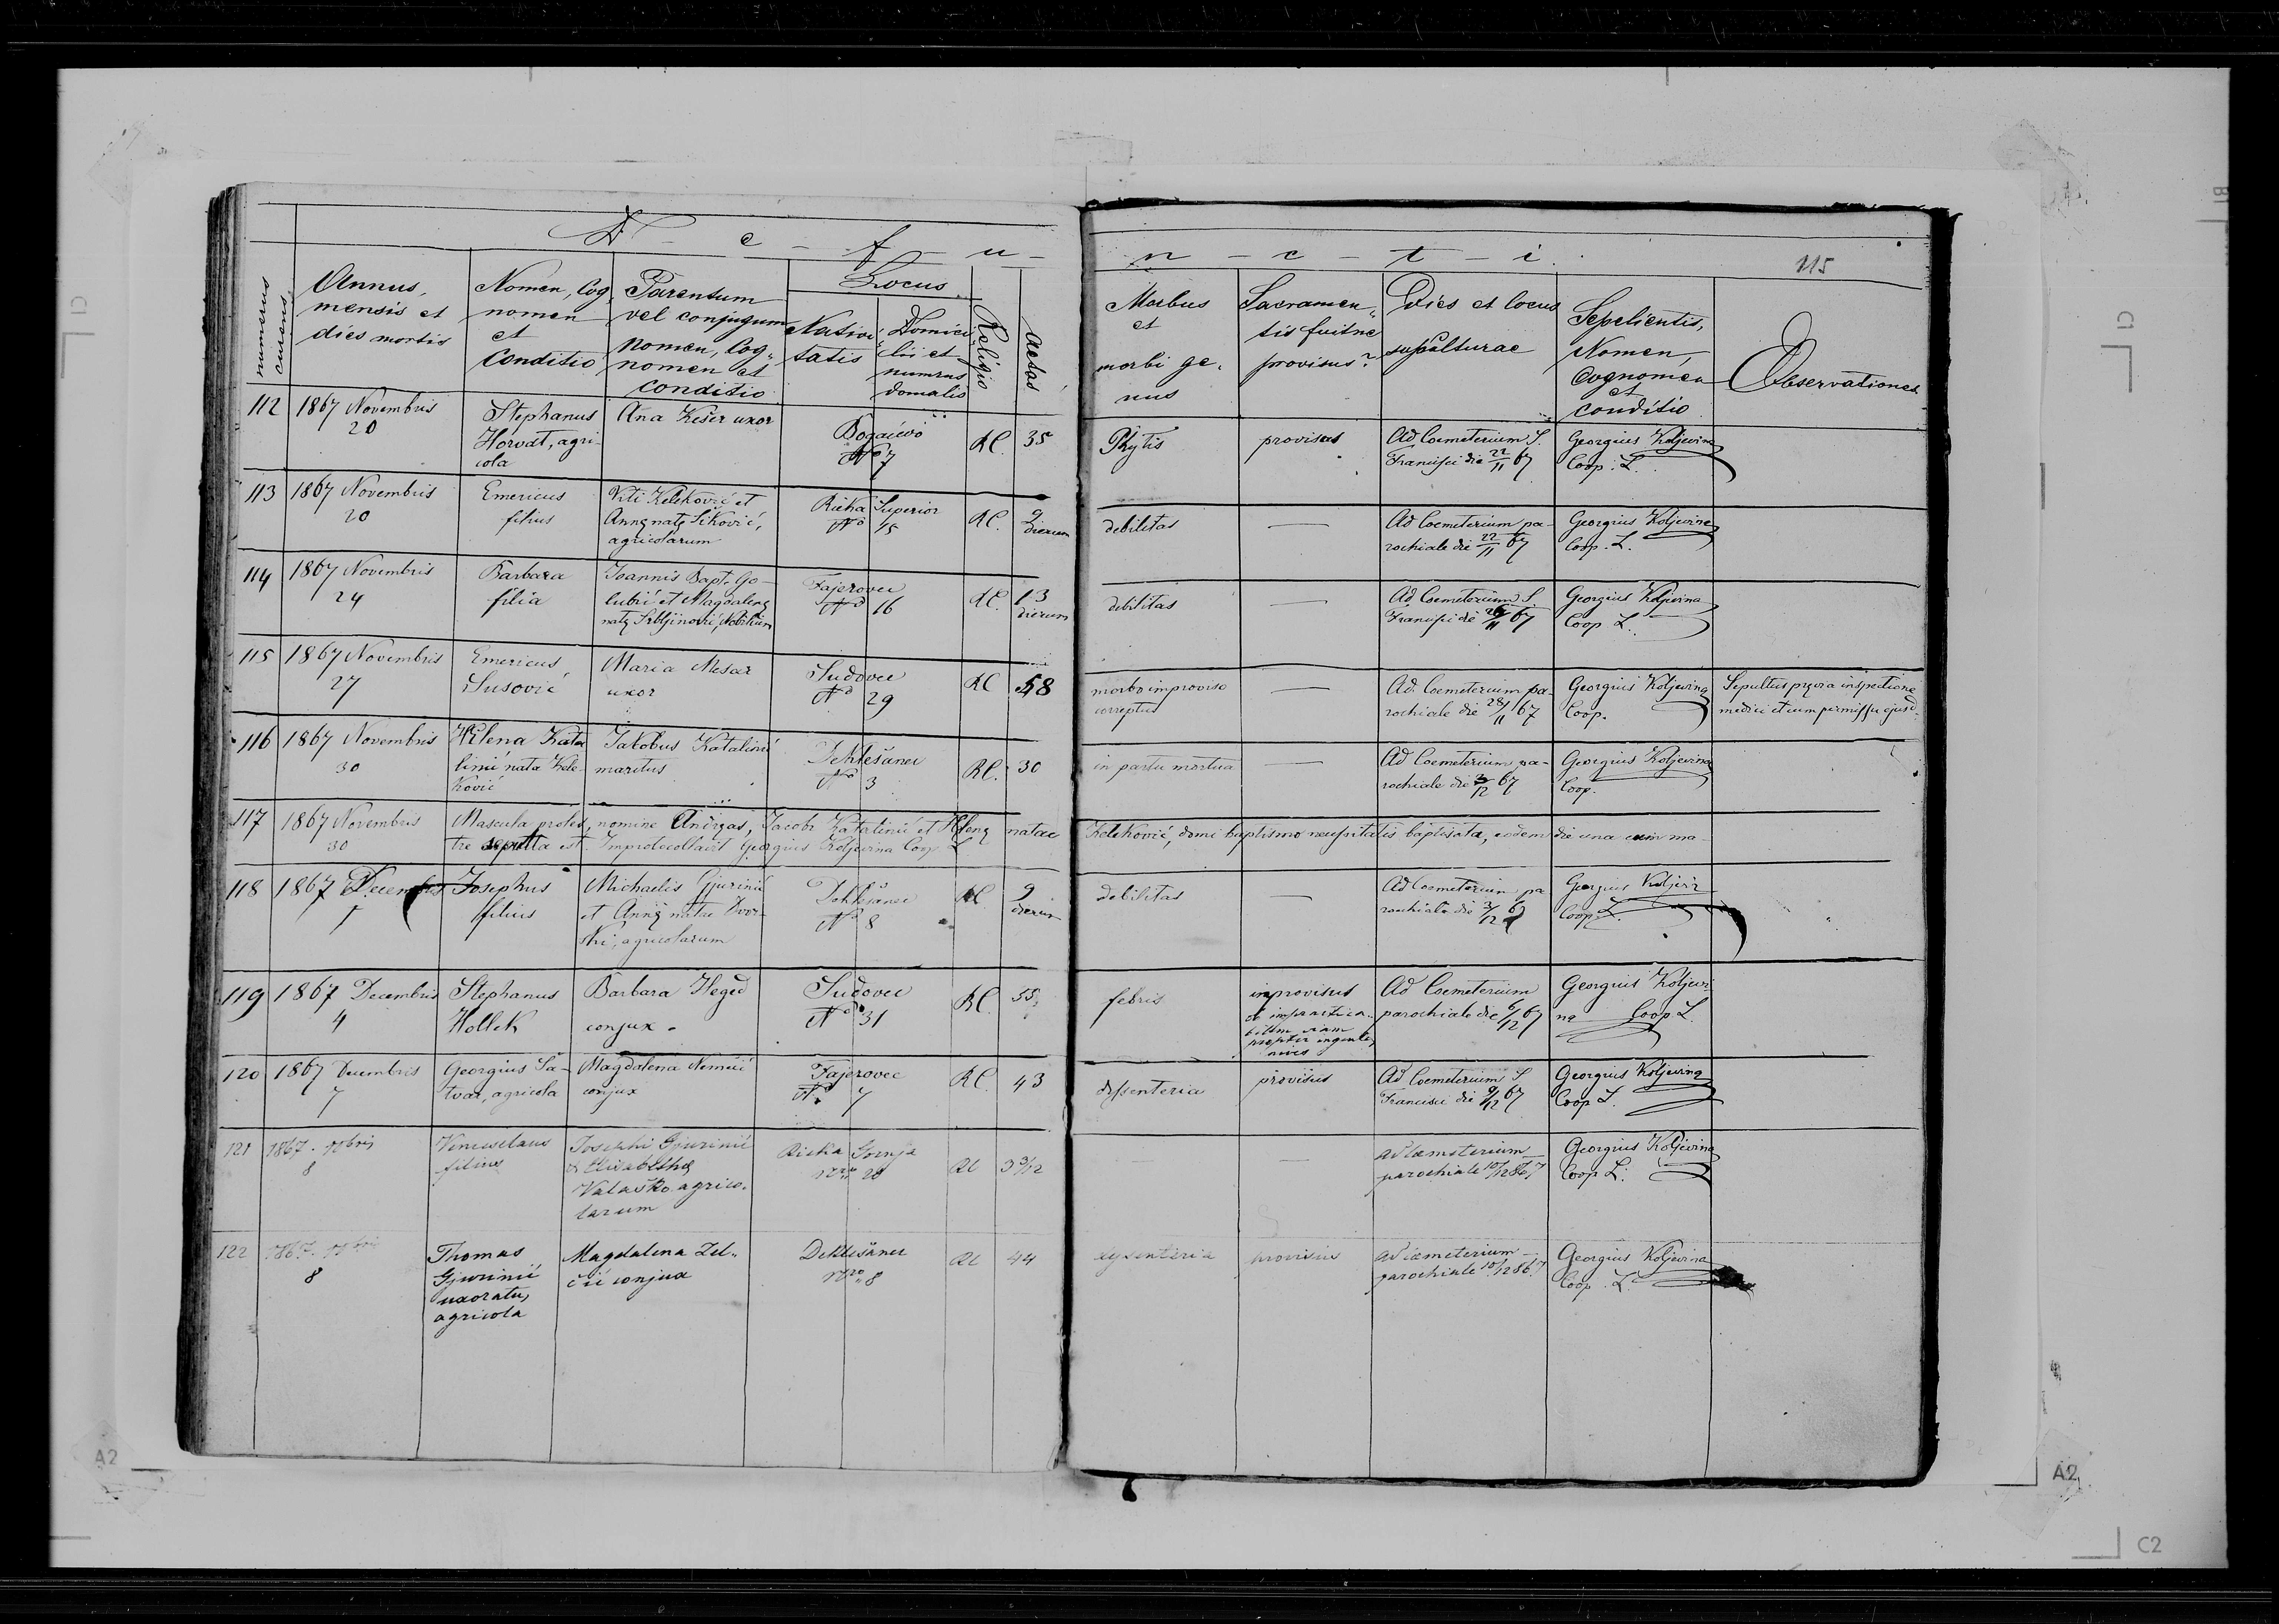 D - e - f - u - n - c - t - i.
115
numerus currens.
Annus,
mensis et
dies mortis
Nomen, Cog,,
nomen
et
Conditio
Parentum
vel conjugum
Nomen, Cog,,
nomen et
conditio
Locus
Nativi,,
tatis
Domici,,
lii et
numerus
domalis
Religio
Aetas
Morbus
et
morbi ge,,
nus
Sacramen,,
tis fuitne
provisus?
Dies et locus
sepulturae
Sepelientis,
Nomen,
Cognomen
et
conditio
Observationes
112
1867 Novembris
20
Stephanus
Horvat, agri-
cola
Ana Kešer uxor
Bogačevo
No 7
RC.
35
Phytis
provisus
Ad Coemeterium S.
Francisci die 22/11 67
Georgius Koljevina
Coop. L.
113
1867 Novembris
20
Emericus
filius
Viti Keleković et
Annę natę Siković,
agricolarum
Rieka Superior
No 15
RC.
9
dierum
debilitas
—
Ad Coemeterium pa-
rochiale die 22/11 67
Georgius Koljevina
Coop. L.
114
1867 Novembris
24
Barbara
filia
Joannis Bapt. Go-
lubić et Magdalenę
natę Srbljinović, Nobilium
Fajerovec
No 16
RC.
13
dierum
debilitas
—
Ad Coemeterium S
Francisci die 26/11 67
Georgius Koljevina
Coop L.
115
1867 Novembris
27
Emericus
Susović
Maria Mesar
uxor
Sudovec
No 29
RC
58
morbo improviso
correptus
—
Ad Coemeterium pa-
rochiale die 28/11 67
Georgius Koljevina
Coop.
Sepultus prævia inspectione
medici et cum permissu ejusd.
116
1867 Novembris
30
Helena Kata
linić nata Kele-
ković
Jakobus Katalinić
maritus
Deklešanec
No 3
RC.
30
in partu mortua
—
Ad Coemeterium pa-
rochiale die 2/12 67
Georgius Koljevina
Coop.
117
1867 Novembris
30
Mascula proles, nomine Andreas, Jacobi Katalinić et Helenę natae Keleković, domi baptismo necessitatis baptisata, eodem die una cum ma-
tre sepulta est. Improtocollavit Georgius Koljevina Coop L
118
1867 Decembris
1
Josephus
filius
Michaelis Gjurinić
et Annę natae Dvor-
ski, agricolarum
Deklešanec
No 8
RC.
9
dierum
debilitas
—
Ad Coemeterium pa
rochiale die 3/12 67
Georgius Koljevi
Coop L.
119
1867 Decembris
4
Stephanus
Hollek
Barbara Heged
conjux.
Sudovec
No 31
RC.
55
febris
improvisus
ob impractica-
bilem viam
propter ingentes
nives
Ad Coemeterium
parochiale die 6/12 67
Georgius Koljevi-
na Coop L.
120
1867 Decembris
7
Georgius Sa-
tvar, agricola
Magdalena Nemčić
conjux
Fajerovec
No 7
RC.
43
dyssenteria
provisus
Ad Coemeterium S
Francisci die 9/12 67
Georgius Koljevina
Coop L.
121
1867. Xbris
8
Venceslaus
filius
Josephi Gjurinić
& Elisabethę
Valaško agrico,
larum
Rieka Gornja
Nro 28
RC
3 3/12
—
—
Ad cæmeterium
parochiale 10/12 867
Georgius Koljevina
Coop L.
122
1867. Xbris
8
Thomas
Gjurinić
uxoratus,
agricola
Magdalena Zel,,
čić conjux
Deklešanec
Nro 8
RC
44
dysenteria
provisus
Ad cæmeterium
parochiale 10/12 867
Georgius Koljevina
Coop. L.
C1
C1
B1
A2
A2
C2